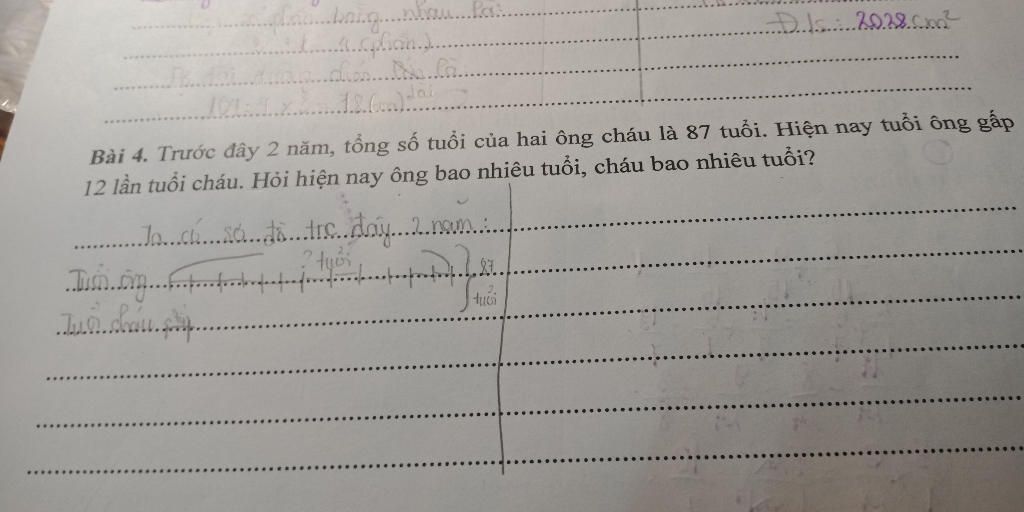 bằng nhau là:
Đ/s: 2028 cm²
(phần)
Bài 4. Trước đây 2 năm, tổng số tuổi của hai ông cháu là 87 tuổi. Hiện nay tuổi ông gấp
12 lần tuổi cháu. Hỏi hiện nay ông bao nhiêu tuổi, cháu bao nhiêu tuổi?
Ta có sơ đồ trc đây 2 năm:
? tuổi
Tuổi ông 87
tuổi
Tuổi cháu